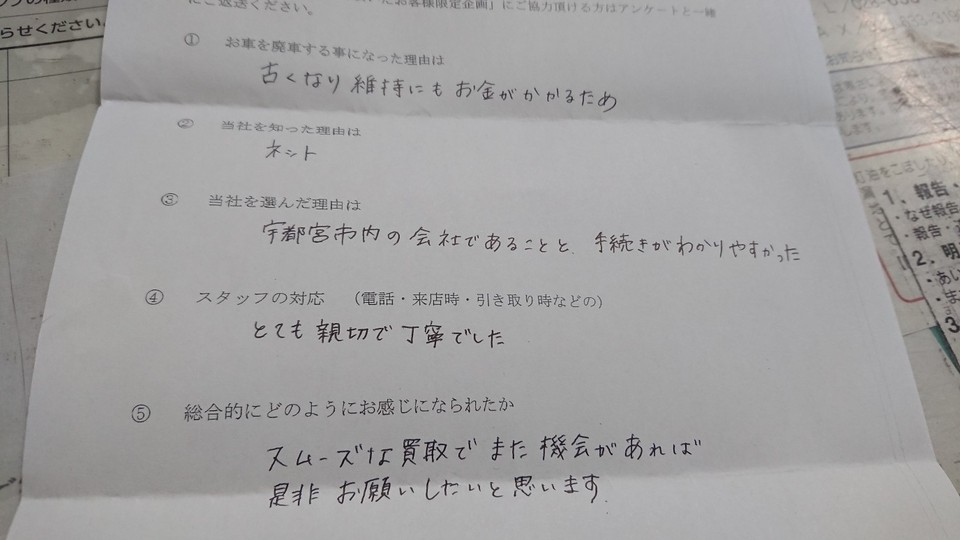 らせください。
お客様限定企画」にご協力頂ける方はアンケートと一緒
にご返送ください。
① お車を廃車する事になった理由は
古くなり維持にもお金がかかるため
② 当社を知った理由は
ネット
③ 当社を選んだ理由は
宇都宮市内の会社であることと、手続きがわかりやすかった
④ スタッフの対応 （電話・来店時・引き取り時などの）
とても親切で丁寧でした
⑤ 総合的にどのようにお感じになられたか
スムーズな買取でまた機会があれば
是非お願いしたいと思います。
灯油をこぼしたり
1、報告・
・なぜ報告
・報告・
2、明
・あい
・ま
3